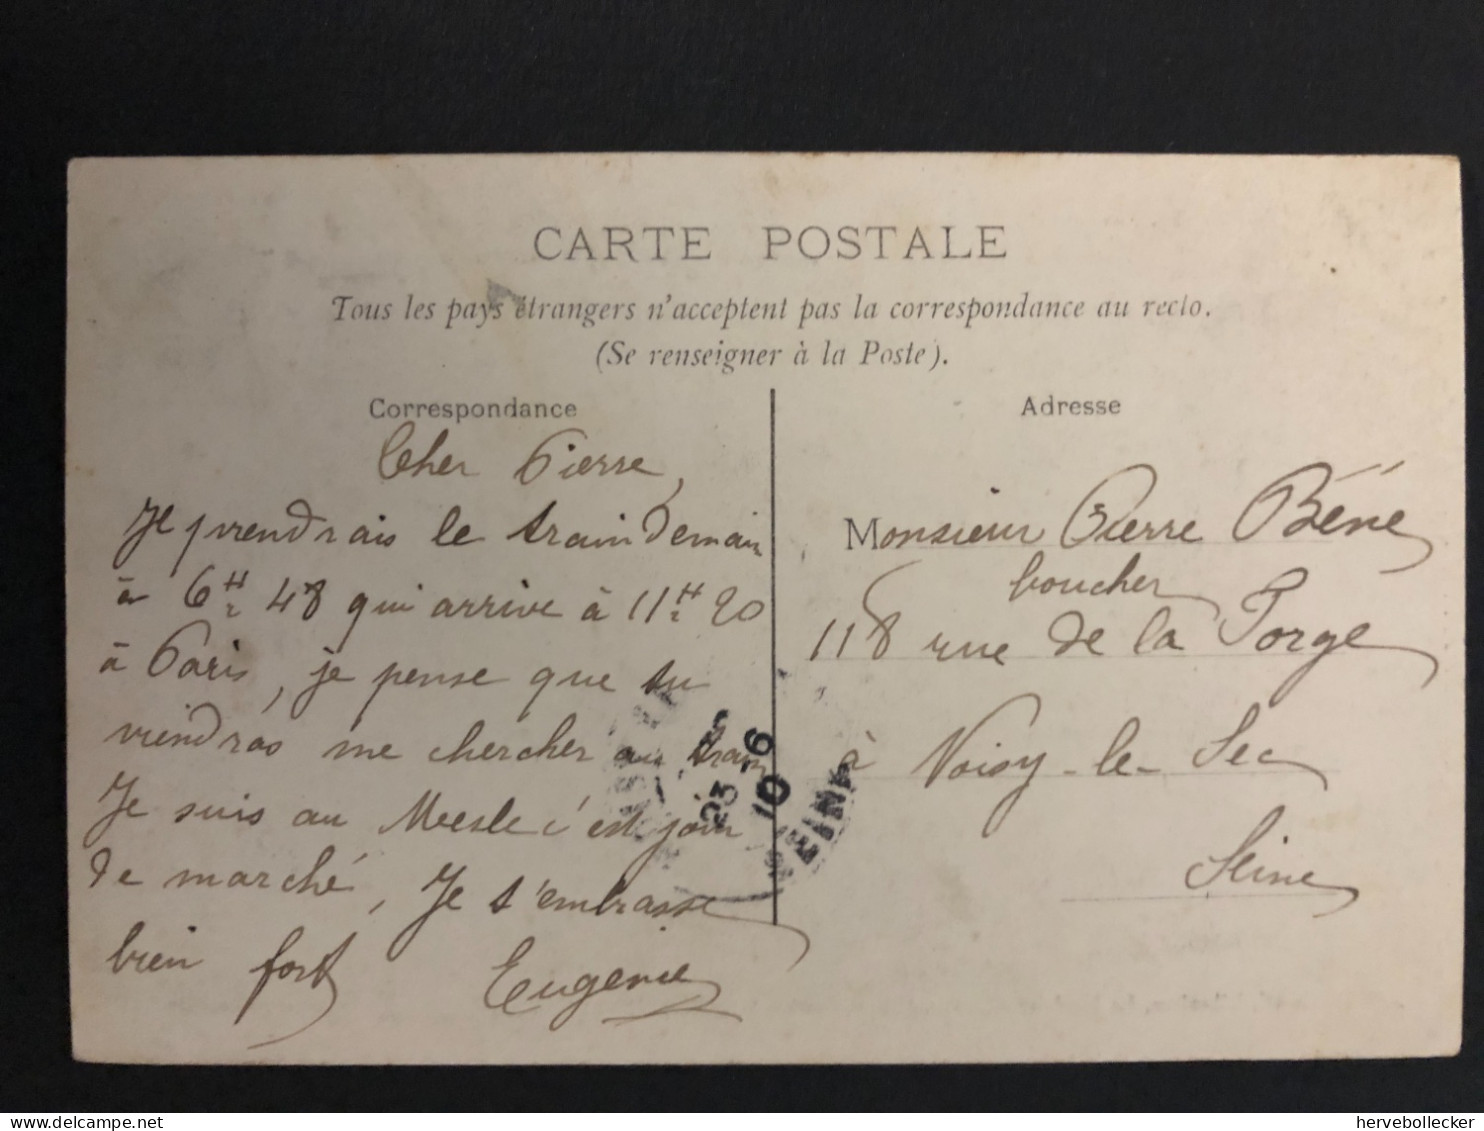 CARTE POSTALE
Tous les pays étrangers n'acceptent pas la correspondance au recto.
(Se renseigner à la Poste).
Correspondance
Cher Pierre,
Je prendrais le train demain
à 6 H 48 qui arrive à 11 H 20
à Paris, je pense que tu
viendras me chercher au train
Je suis au Mesle c'est jour
de marché, Je t'embrasse
bien fort Eugénie
Adresse
Monsieur Pierre Béné
boucher
118 rue de la Forge
à Noisy-le-Sec
Seine
23 -6
10
SEINE
hervebollecker